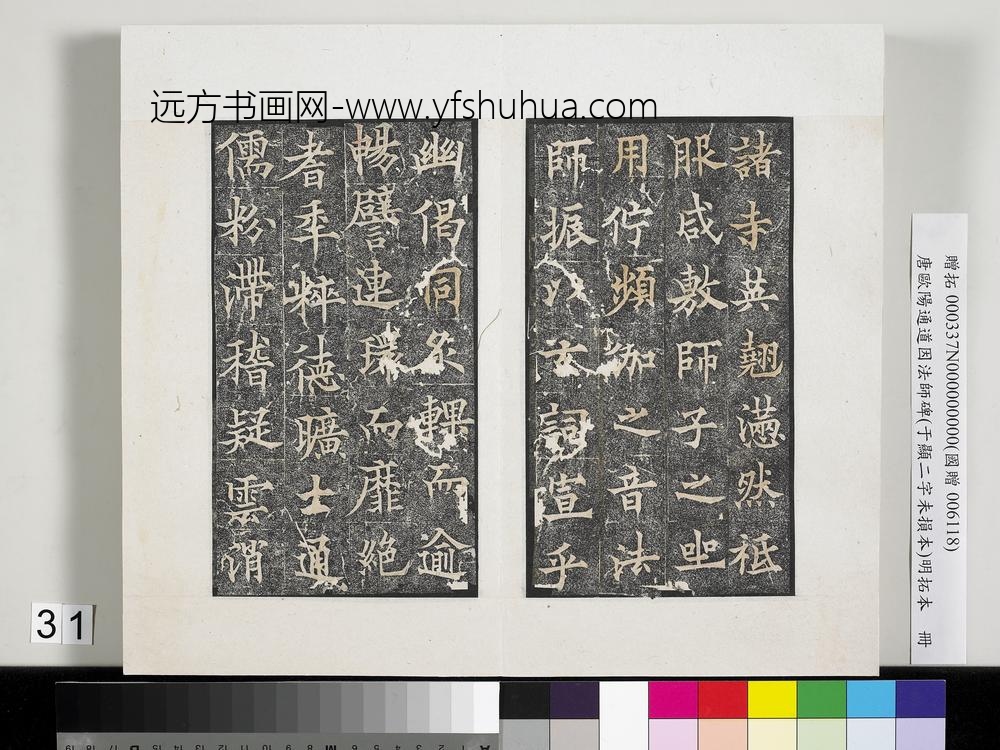 远方书画网-www.yfshuhua.com
諸寺共翹滿然祗
服咸敷師子之坐
用佇頻伽之音法
師振以文詞宣乎
幽偈同炙輠而逾
暢譬連環而靡絕
耆年粹德曠士通
儒粉滯稽疑雲消
贈拓 000337N000000000(國贈 006118)
唐歐陽通道因法師碑(于顯二字未損本)明拓本 冊
31